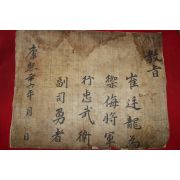 敎旨
崔廷龍爲
禦侮將軍
行忠武衛
副司勇者
康熙六年 月 日